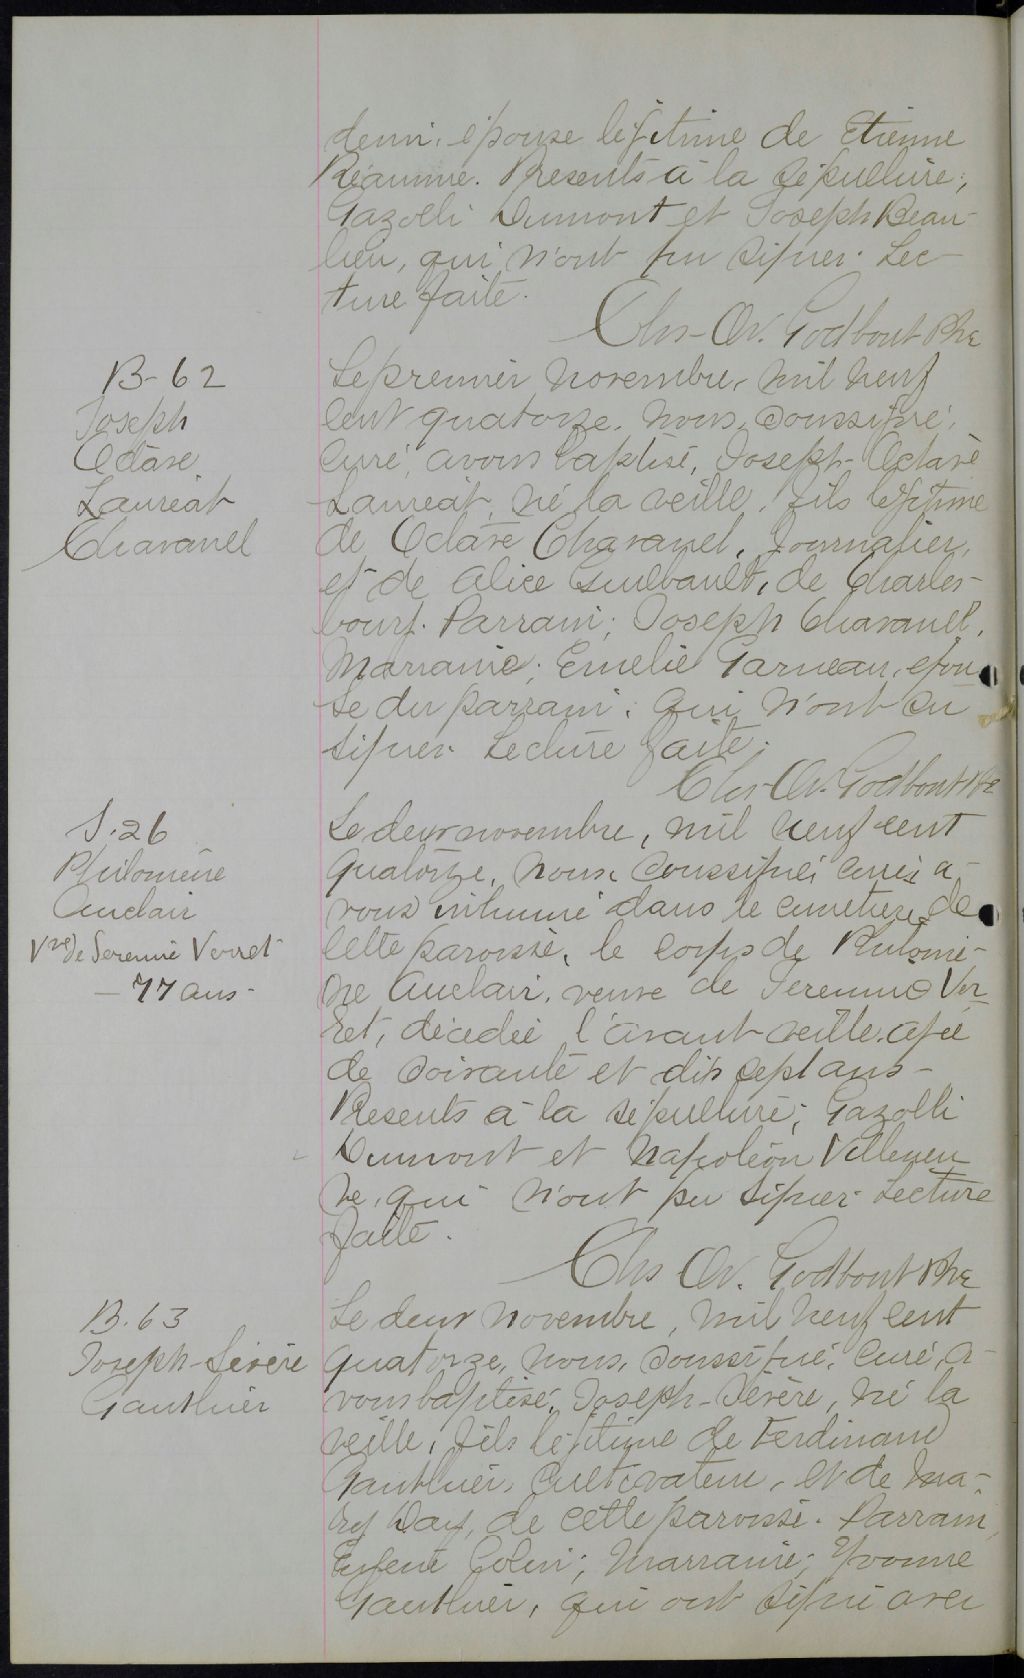 demi, épouse légitime de Etienne
Réaume. Presents à la sépulture;
Gazolli Dumont et Joseph Beau-
lieu, qui n'ont pu signer. Lec-
ture faite.
Chs-Ov. Godbout Ptre
B-62
Joseph
Octave
Lauréat
Chavanel
Le premier novembre, mil neuf
cent quatorze, nous, soussigné,
curé, avons baptisé, Joseph-Octave
Lauréat, né la veille, fils légitime
de Octave Chavanel, journalier,
et de Alice Guilbault, de Charles-
bourg. Parrain; Joseph Chavanel,
Marraine; Emelie Garneau, épou-
se du parrain, qui n'ont su
signer. Lecture faite.
Chs-Ov. Godbout Ptre
S.26
Philomène
Auclair
Vve de Jeremie Verret
- 77 ans -
Le deux novembre, mil neuf cent
quatorze, nous, soussigné, curé, a-
vons inhumé dans le cimetière de
cette paroisse, le corps de Philomè-
ne Auclair, veuve de Jeremie Ver-
ret, décédée l'avant-veille, agée
de soixante et dix sept ans -
Presents à la sépulture; Gazolli
Dumont et Napoléon Villeneu
ve, qui n'ont pu signer. Lecture
faite.
Chs Ov. Godbout Ptre
B.63
Joseph-Sévère
Gauthier
Le deux novembre, mil neuf cent
quatorze, nous, soussigné, curé, a-
vons baptisé, Joseph-Sévère, né la
veille, fils légitime de Ferdinand
Gauthier, cultivateur, et de Ma-
ry Day, de cette paroisse. Parrain,
Eugène Colin; Marraine; Yvonne
Gauthier, qui ont signé avec